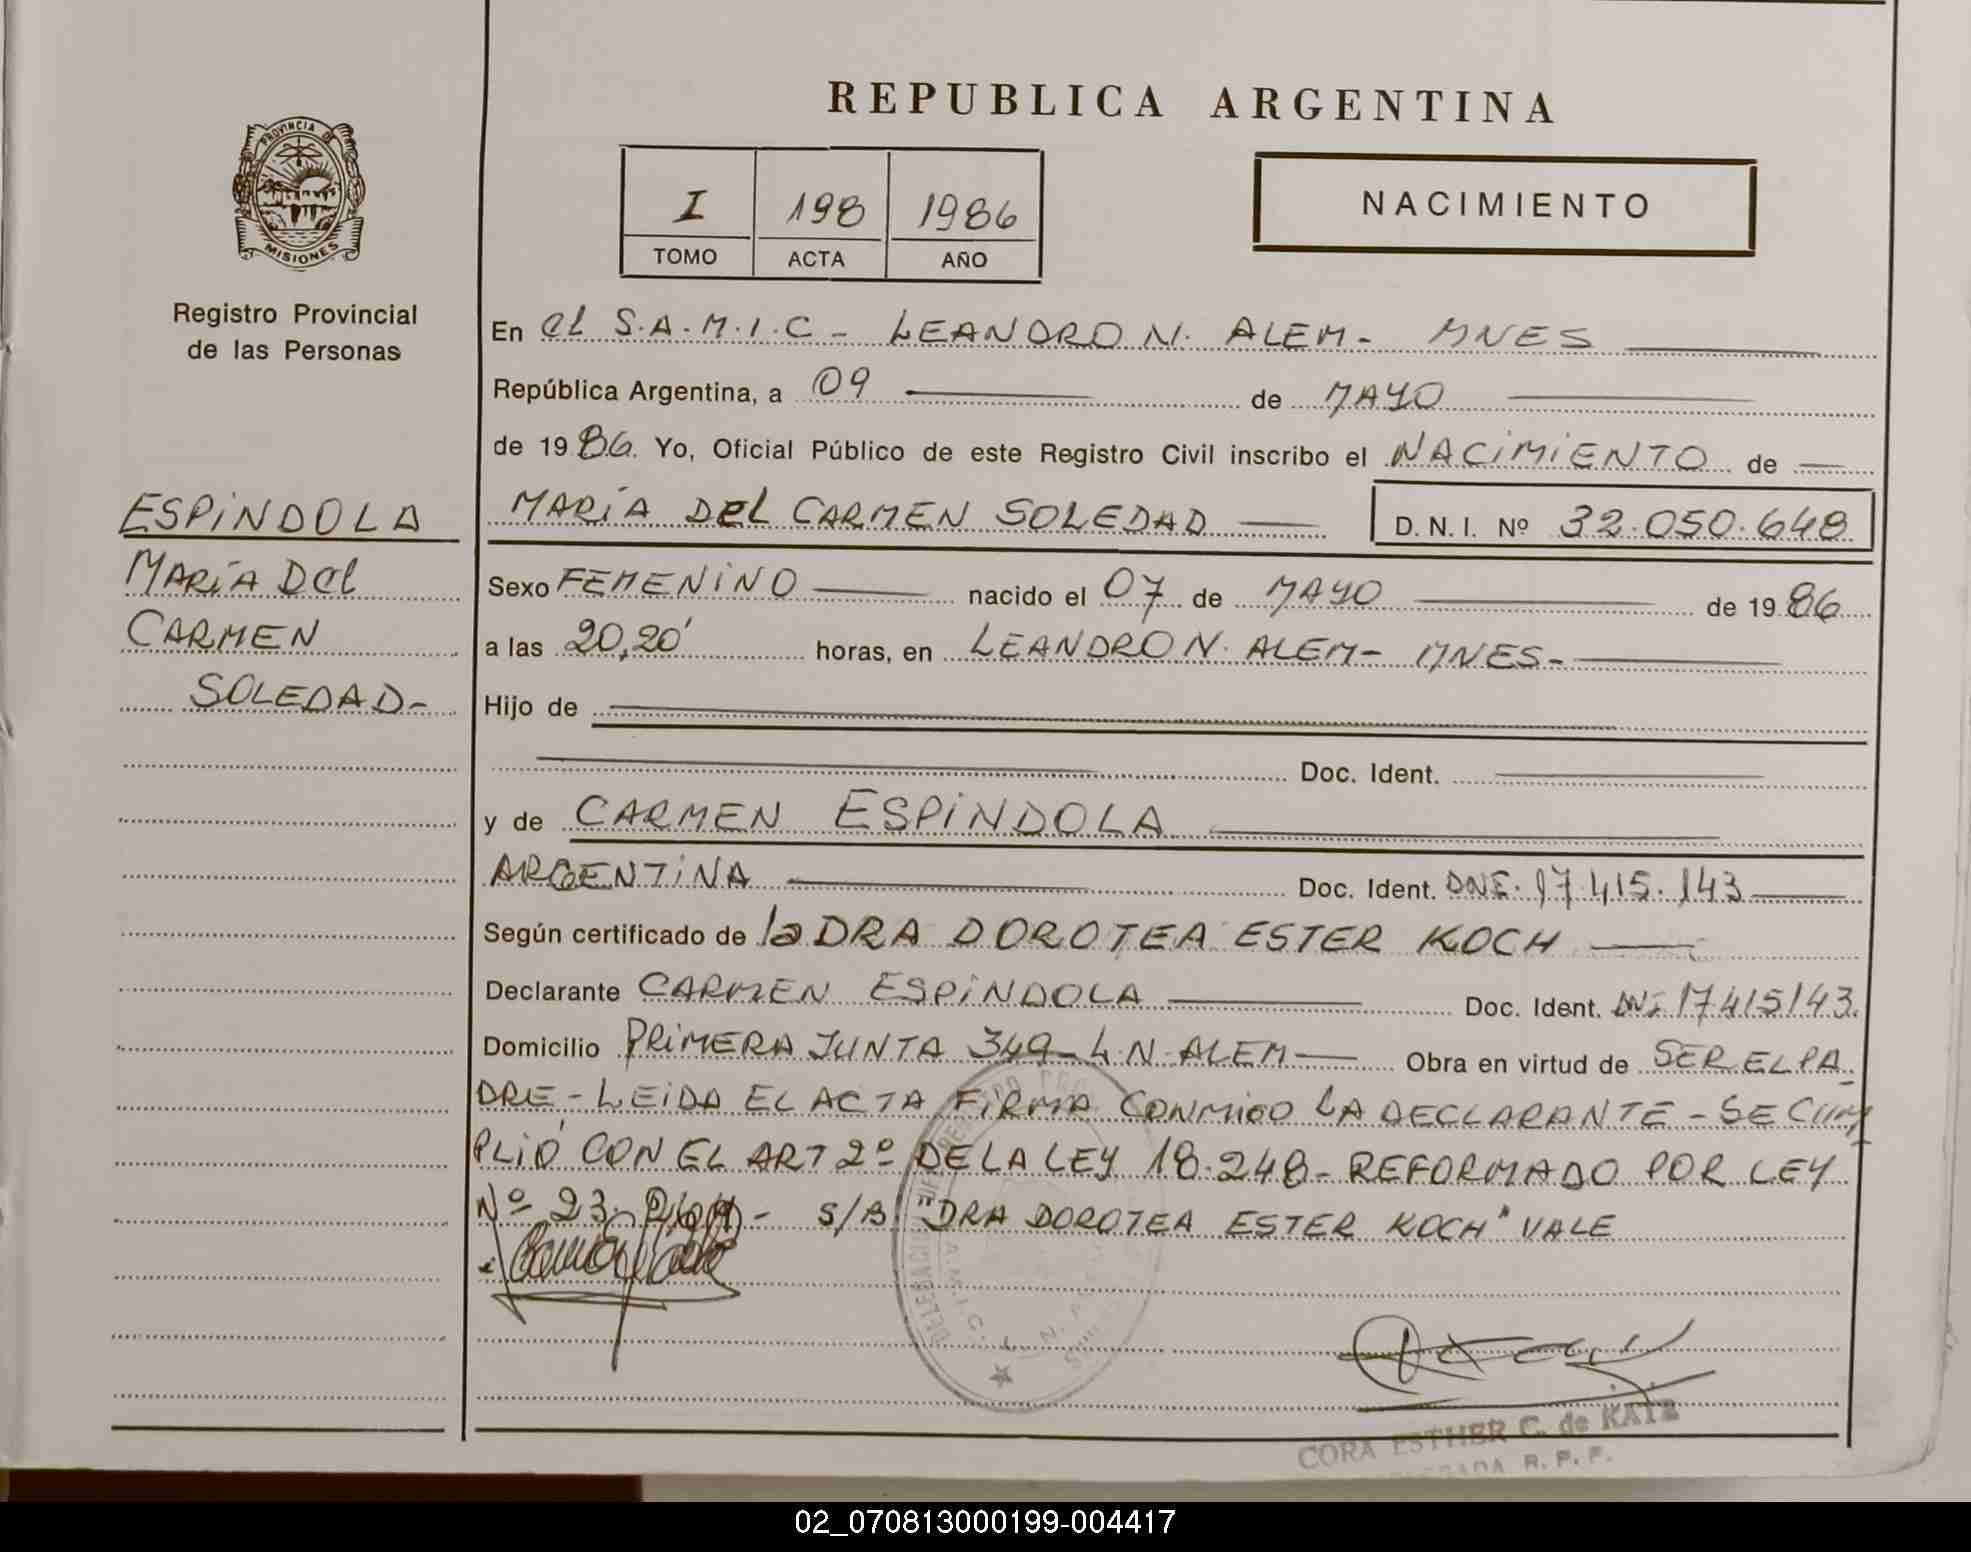 REPUBLICA ARGENTINA
PROVINCIA DE
MISIONES
Registro Provincial
de las Personas
I 198 1986
TOMO ACTA AÑO
NACIMIENTO
En el S.A.M.I.C - LEANDRO N. ALEM - MNES
República Argentina, a 09 de MAYO
de 1986. Yo, Oficial Público de este Registro Civil inscribo el NACIMIENTO de
MARÍA DEL CARMEN SOLEDAD D. N. I. Nº 32.050.648
ESPINDOLA
MARÍA DEL
CARMEN
SOLEDAD-
Sexo FEMENINO nacido el 07 de MAYO de 1986
a las 20,20' horas, en LEANDRO N. ALEM - MNES-
Hijo de
Doc. Ident.
y de CARMEN ESPINDOLA
ARGENTINA Doc. Ident. DNI. 17.415.143
Según certificado de la DRA DOROTEA ESTER KOCH
Declarante CARMEN ESPINDOLA Doc. Ident. DNI 17415143.
Domicilio PRIMERA JUNTA 349 - L.N. ALEM Obra en virtud de SER EL PA-
DRE - LEIDA EL ACTA FIRMA CONMIGO LA DECLARANTE - SE CUM-
PLIÓ CON EL ART 2º DE LA LEY 18.248 - REFORMADO POR LEY
Nº 23. - S/B "DRA DOROTEA ESTER KOCH" VALE
CORA ESTHER C. de KATZ
R. P. P.
02_070813000199-004417